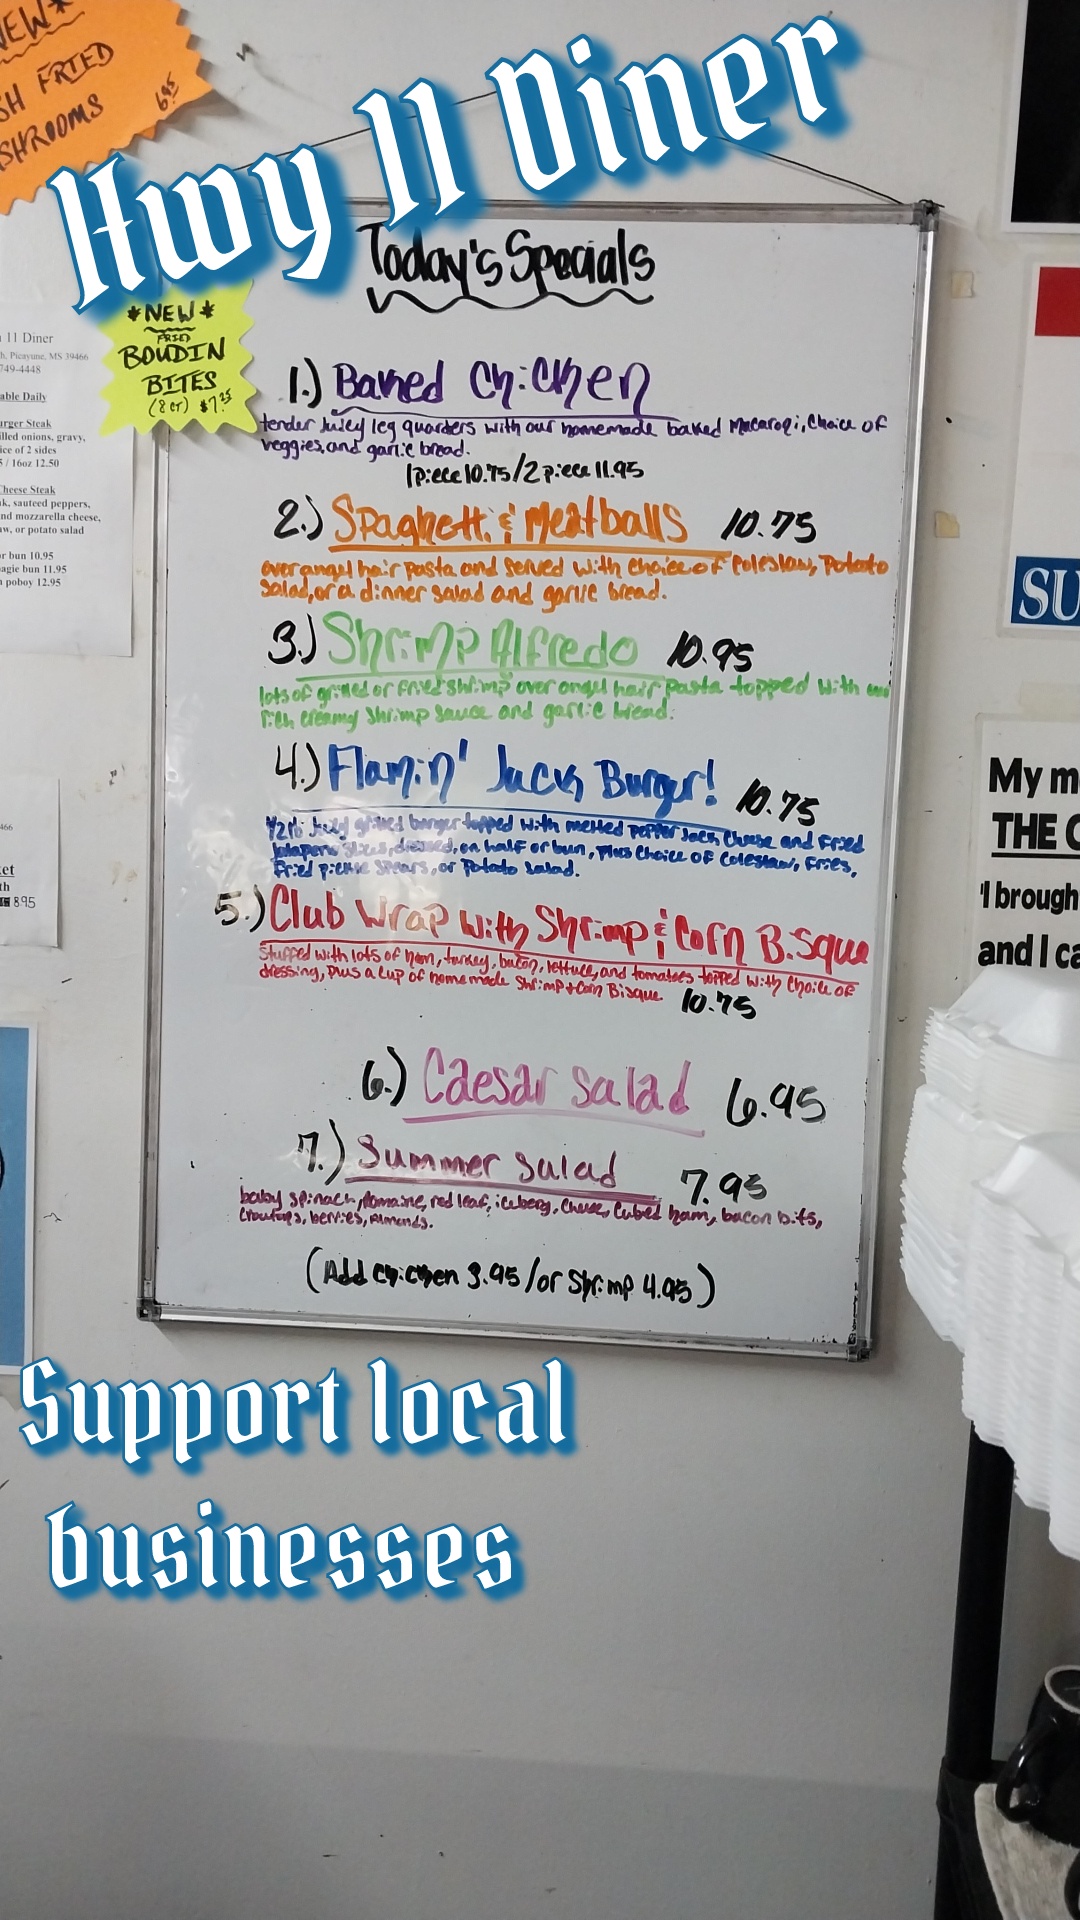 NEW*
SH FRIED
SHROOMS
6.95
Hwy 11 Diner
Today's Specials
*NEW*
FRIED
BOUDIN
BITES
(8 CT)
11 Diner
h, Picayune, MS 39466
749-4448
able Daily
urger Steak
illed onions, gravy,
ice of 2 sides
5 / 16oz 12.50
Cheese Steak
k, sauteed peppers,
nd mozzarella cheese,
aw, or potato salad
or bun 10.95
agie bun 11.95
poboy 12.95
466
ket
th
895
1.) Baked Chicken
tender juicy leg quarters with our homemade baked Macaroni, choice of
veggies, and garlic bread.
1 piece 10.75 / 2 piece 11.95
2.) Spaghetti & Meatballs 10.75
over angel hair pasta and served with choice of Coleslaw, Potato
Salad, or a dinner salad and garlic bread.
3.) Shrimp Alfredo 10.95
lots of grilled or fried shrimp over angel hair pasta topped with our
rich creamy shrimp sauce and garlic bread.
4.) Flamin' Jack Burger! 10.75
1/2 lb juicy grilled burger topped with melted pepper jack cheese and fried
Jalapeno slices, dressed, on half or bun, plus choice of coleslaw, fries,
fried pickle spears, or potato salad.
5.) Club Wrap with Shrimp & Corn Bisque
stuffed with lots of ham, turkey, bacon, lettuce, and tomatoes topped with choice of
dressing, plus a cup of homemade Shrimp + Corn Bisque 10.75
6.) Caesar salad 6.95
7.) Summer salad 7.95
baby spinach, Romaine, red leaf, iceberg, cheese, cubed ham, bacon bits,
croutons, berries, almonds.
(Add chicken 3.95 / or Shrimp 4.95)
SU
My m
THE C
'I brough
and I ca
Support local
businesses